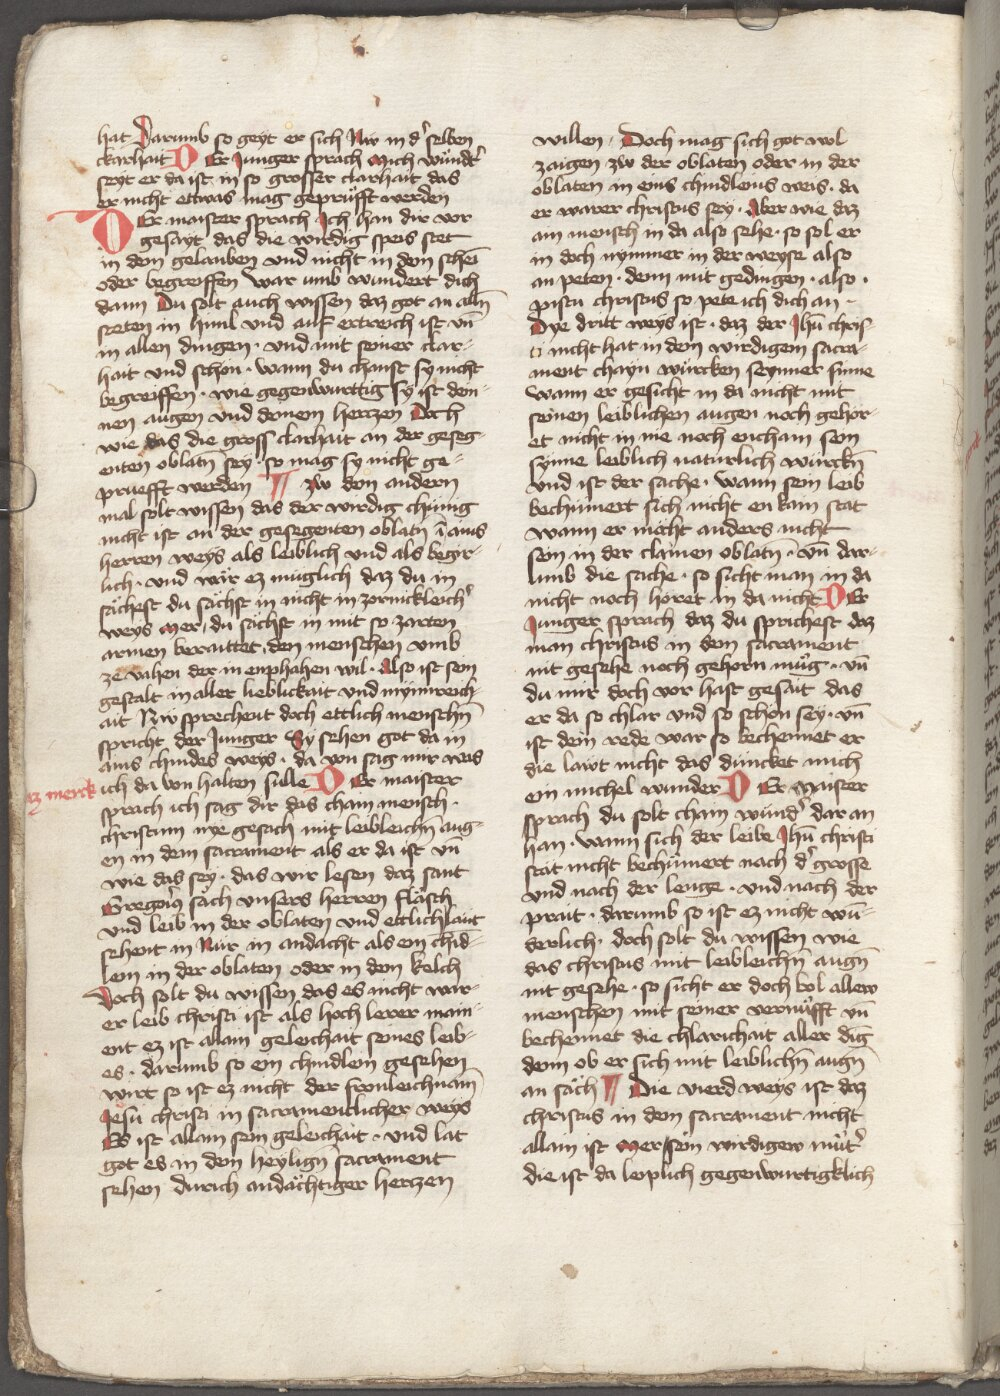 hat Darumb so geyt er sich Nür in d' selben
ckarhait Der Junger sprach Mich wündt'
seyt er da ist in so grosser clarhait das
er nicht ettwas mag geprüfft werden
Der maister sprach Ich han dir vor
gesayt das die wirdig speis stet
in dem gelauben vnd nicht in dem scheī
oder begreiffen War umb wundert dich
dann Du solt auch wissen daz got an alln̄
steten in himl vnd auf ertreich ist vn̄
in allen dingen · vnd mit seiner clar-
hait vnd schön · wann du chanst sy nicht
begreiffen · wie gegenwurttig sy ist dein-
nen augen vnd deinem herczen Doch
wie das die gross clarhait an der geseg-
enten oblatn̄ sey · so mag sy nicht ge-
pruefft werden ¶ zw dem andern
mal solt wissen das der wirdig chünig
nicht ist an der gesegenten oblatn̄ ī ains
herren weys als leiblich vnd als begir-
lich · vnd wär ez müglich daz du in
sächest du sächst in nicht in zornickleich'
weys Mer, du sächst in mit so zarten
armen beraittet, den menschen vmb
ze vahen der in emphahen wil · Also ist sein
gestalt in aller lieblickait vnd mynnreich-
ait Nw sprechent doch ettlich menschn̄
spricht der Junger Sy sehen got da in
ains chindes weys · da von sag mir weis
ich da von halten sülle Der maister
cz merck
sprach ich sag dir das cham mensch ·
christum nye gesach mit leibleichn̄ aug-
en in dem sacrament als er da ist vn̄
wie das sey · das wir lesen daz sant
Gregoius sach vnsers herren fläsch
vnd leib in der oblaten vnd ettlich läut
sehent in Nür in andacht als ein chīd-
lein in der oblaten oder in dem kelch
Doch solt du wissen das es nicht war-
er leib christi ist als hoch lerer main-
ent ez ist allain geleichait seines leib-
es · darumb so ein chindlein gesehen
wirt so ist ez nicht der fronleichnam
Jesu christi in sacramentlicher weys
Es ist allain sein geleichait · vnd lat
got es in dem heylign̄ sacrament
sehen durich andächtiger herczen
willen · Doch mag sich got wol
zaigen zw der oblaten oder in der
oblaten in eins chindleins weis · da
er warer christus sey · Aber wie daz
ain mensch in da also sehe · so sol er
in doch nymmer in der weyse also
an peten · denn mit gedingen · also ·
pistu christus so pete ich dich an ·
Dye dritt weys ist · daz der Jhū chris-
ti nicht hat in dem wirdigem sacra-
ment chayn würcken seynner sinne
Wann er gesicht in da nicht mit
seinen leiblichen augen noch gehör-
et nicht in me noch encham sein
synne leiblich natürlich würckn̄
vnd ist der sache · Wann sein leib
bechümert sich nicht en kain stat
wann er möcht anders nicht
sein in der clainen oblatn̄ · vn̄ dar-
umb die sache · so sicht man in da
nicht noch höret in da nicht Der
Junger sprach daz du sprichest daz
man christus in dem sacrament
nit gesehe noch gehorn müg · vn̄
du mir doch vor hast gesait das
er da so chlar vnd so schön sey · vn̄
ist dein rede war so bechennet er
die lawt nicht das düncket mich
ein michel wunder Der Maister
sprach du solt cham wünd' dar an
han · wann sich der leibe Jhū christi
stät nicht bechümert nach d' grosse
vnd nach der lenge · vnd nach der
prait · darumb so ist ez nicht wū-
derlich · doch solt du wissen wie
das christus mit leibleichn̄ augn̄
nit gesehe · so sicht er doch bol allew
menschen mit seiner vernüfft vn̄
bechennet die chlarichait aller dīg
denn ob er sich mit leiblichn̄ augn̄
an säch ¶ Die vierd weys ist daz
christus in dem sacrament nicht
allain ist Mer sein wirdigew müt'
die ist da leiplich gegenwurtigklich